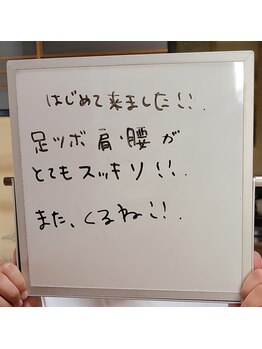 はじめて来ました!!.
足ツボ 肩・腰が
とてもスッキリ!!.
また、くるね!!.